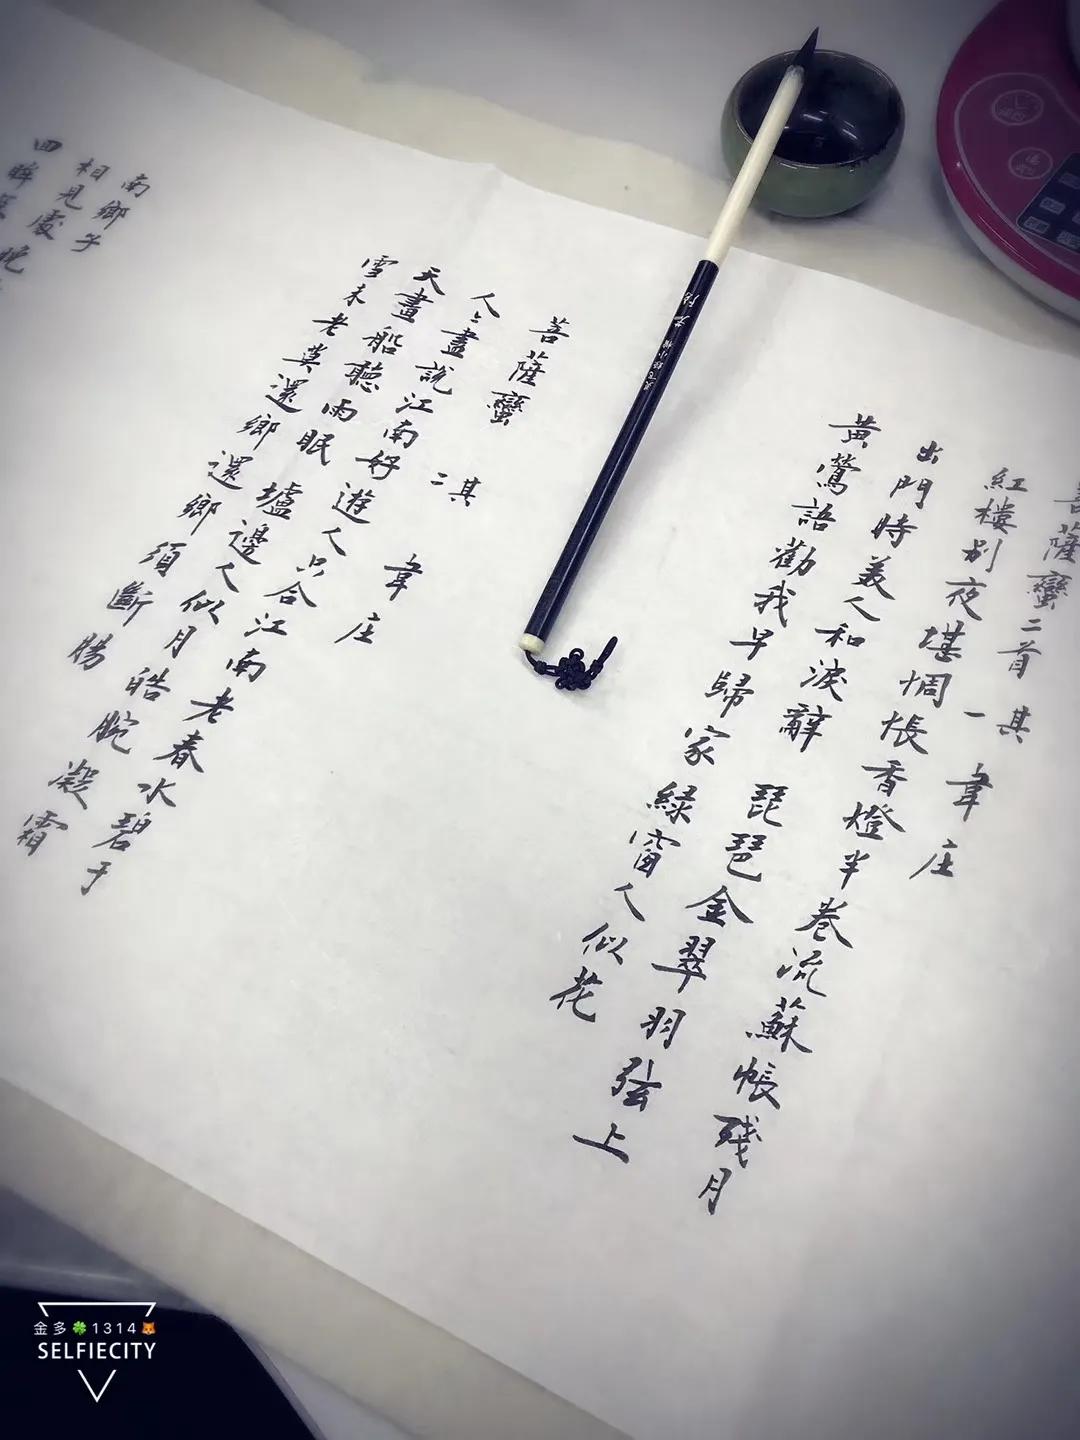 菩薩蠻二首 其一 韋莊
紅樓别夜堪惆悵香燈半卷流蘇帳殘月
出門時美人和淚辭 琵琶金翠羽弦上
黄鶯語勸我早歸家綠窗人似花
菩薩蠻 其二 韋庄
人〻盡說江南好遊人只合江南老春水碧于
天畫船聽雨眠 壚邊人似月皓腕凝霜
雪未老莫還鄉還鄉須斷腸
南鄉子
相見處晚
回眸
金多🍀1314🦊
SELFIECITY